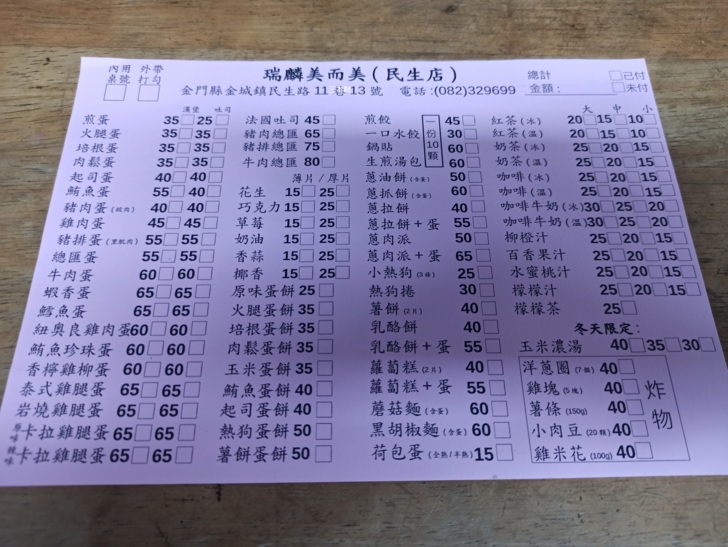 內用 外帶
桌號 打勾
瑞麟美而美(民生店)
金門縣金城鎮民生路11巷13號 電話:(082)329699
總計 已付
金額: 未付
漢堡 吐司
煎蛋 35 25
火腿蛋 35 35
培根蛋 35 35
肉鬆蛋 35 35
起司蛋 40 40
鮪魚蛋 55 40
豬肉蛋(絞肉) 40 40
雞肉蛋 45 45
豬排蛋(里肌肉) 55 55
總匯蛋 55 55
牛肉蛋 60 60
蝦香蛋 65 65
鱈魚蛋 65 65
紐奧良雞肉蛋60 60
鮪魚珍珠蛋 60 60
香檸雞柳蛋 60 60
泰式雞腿蛋 65 65
岩燒雞腿蛋 65 65
原味 卡拉雞腿蛋 65 65
辣味 卡拉雞腿蛋 65 65
法國吐司 45
豬肉總匯 65
豬排總匯 75
牛肉總匯 80
薄片/厚片
花生 15 25
巧克力 15 25
草莓 15 25
奶油 15 25
香蒜 15 25
椰香 15 25
原味蛋餅 25
火腿蛋餅 35
培根蛋餅 35
肉鬆蛋餅 35
玉米蛋餅 35
鮪魚蛋餅 40
起司蛋餅 40
熱狗蛋餅 50
薯餅蛋餅 50
煎餃 45
一口水餃 30
鍋貼 60
生煎湯包 60
一份10顆
蔥油餅(含蛋) 50
蔥抓餅(含蛋) 60
蔥拉餅 40
蔥拉餅+蛋 55
蔥肉派 50
蔥肉派+蛋 65
小熱狗(3條) 25
熱狗捲 30
薯餅(2片) 40
乳酪餅 40
乳酪餅+蛋 55
蘿蔔糕(2片) 40
蘿蔔糕+蛋 55
蘑菇麵(含蛋) 60
黑胡椒麵(含蛋) 60
荷包蛋(全熟/半熟) 15
大 中 小
紅茶(冰) 20 15 10
紅茶(溫) 20 15 10
奶茶(冰) 25 20 15
奶茶(溫) 25 20 15
咖啡(冰) 25 20 15
咖啡(溫) 25 20 15
咖啡牛奶(冰)30 25 20
咖啡牛奶(溫)30 25 20
柳橙汁 25 20 15
百香果汁 25 20 15
水蜜桃汁 25 20 15
檬檬汁 25 20 15
檬檬茶 25
冬天限定:
玉米濃湯 40 35 30
洋蔥圈(7個) 40
雞塊(5塊) 40
薯條(150g) 40
小肉豆(20顆) 40
雞米花(100g) 40
炸物